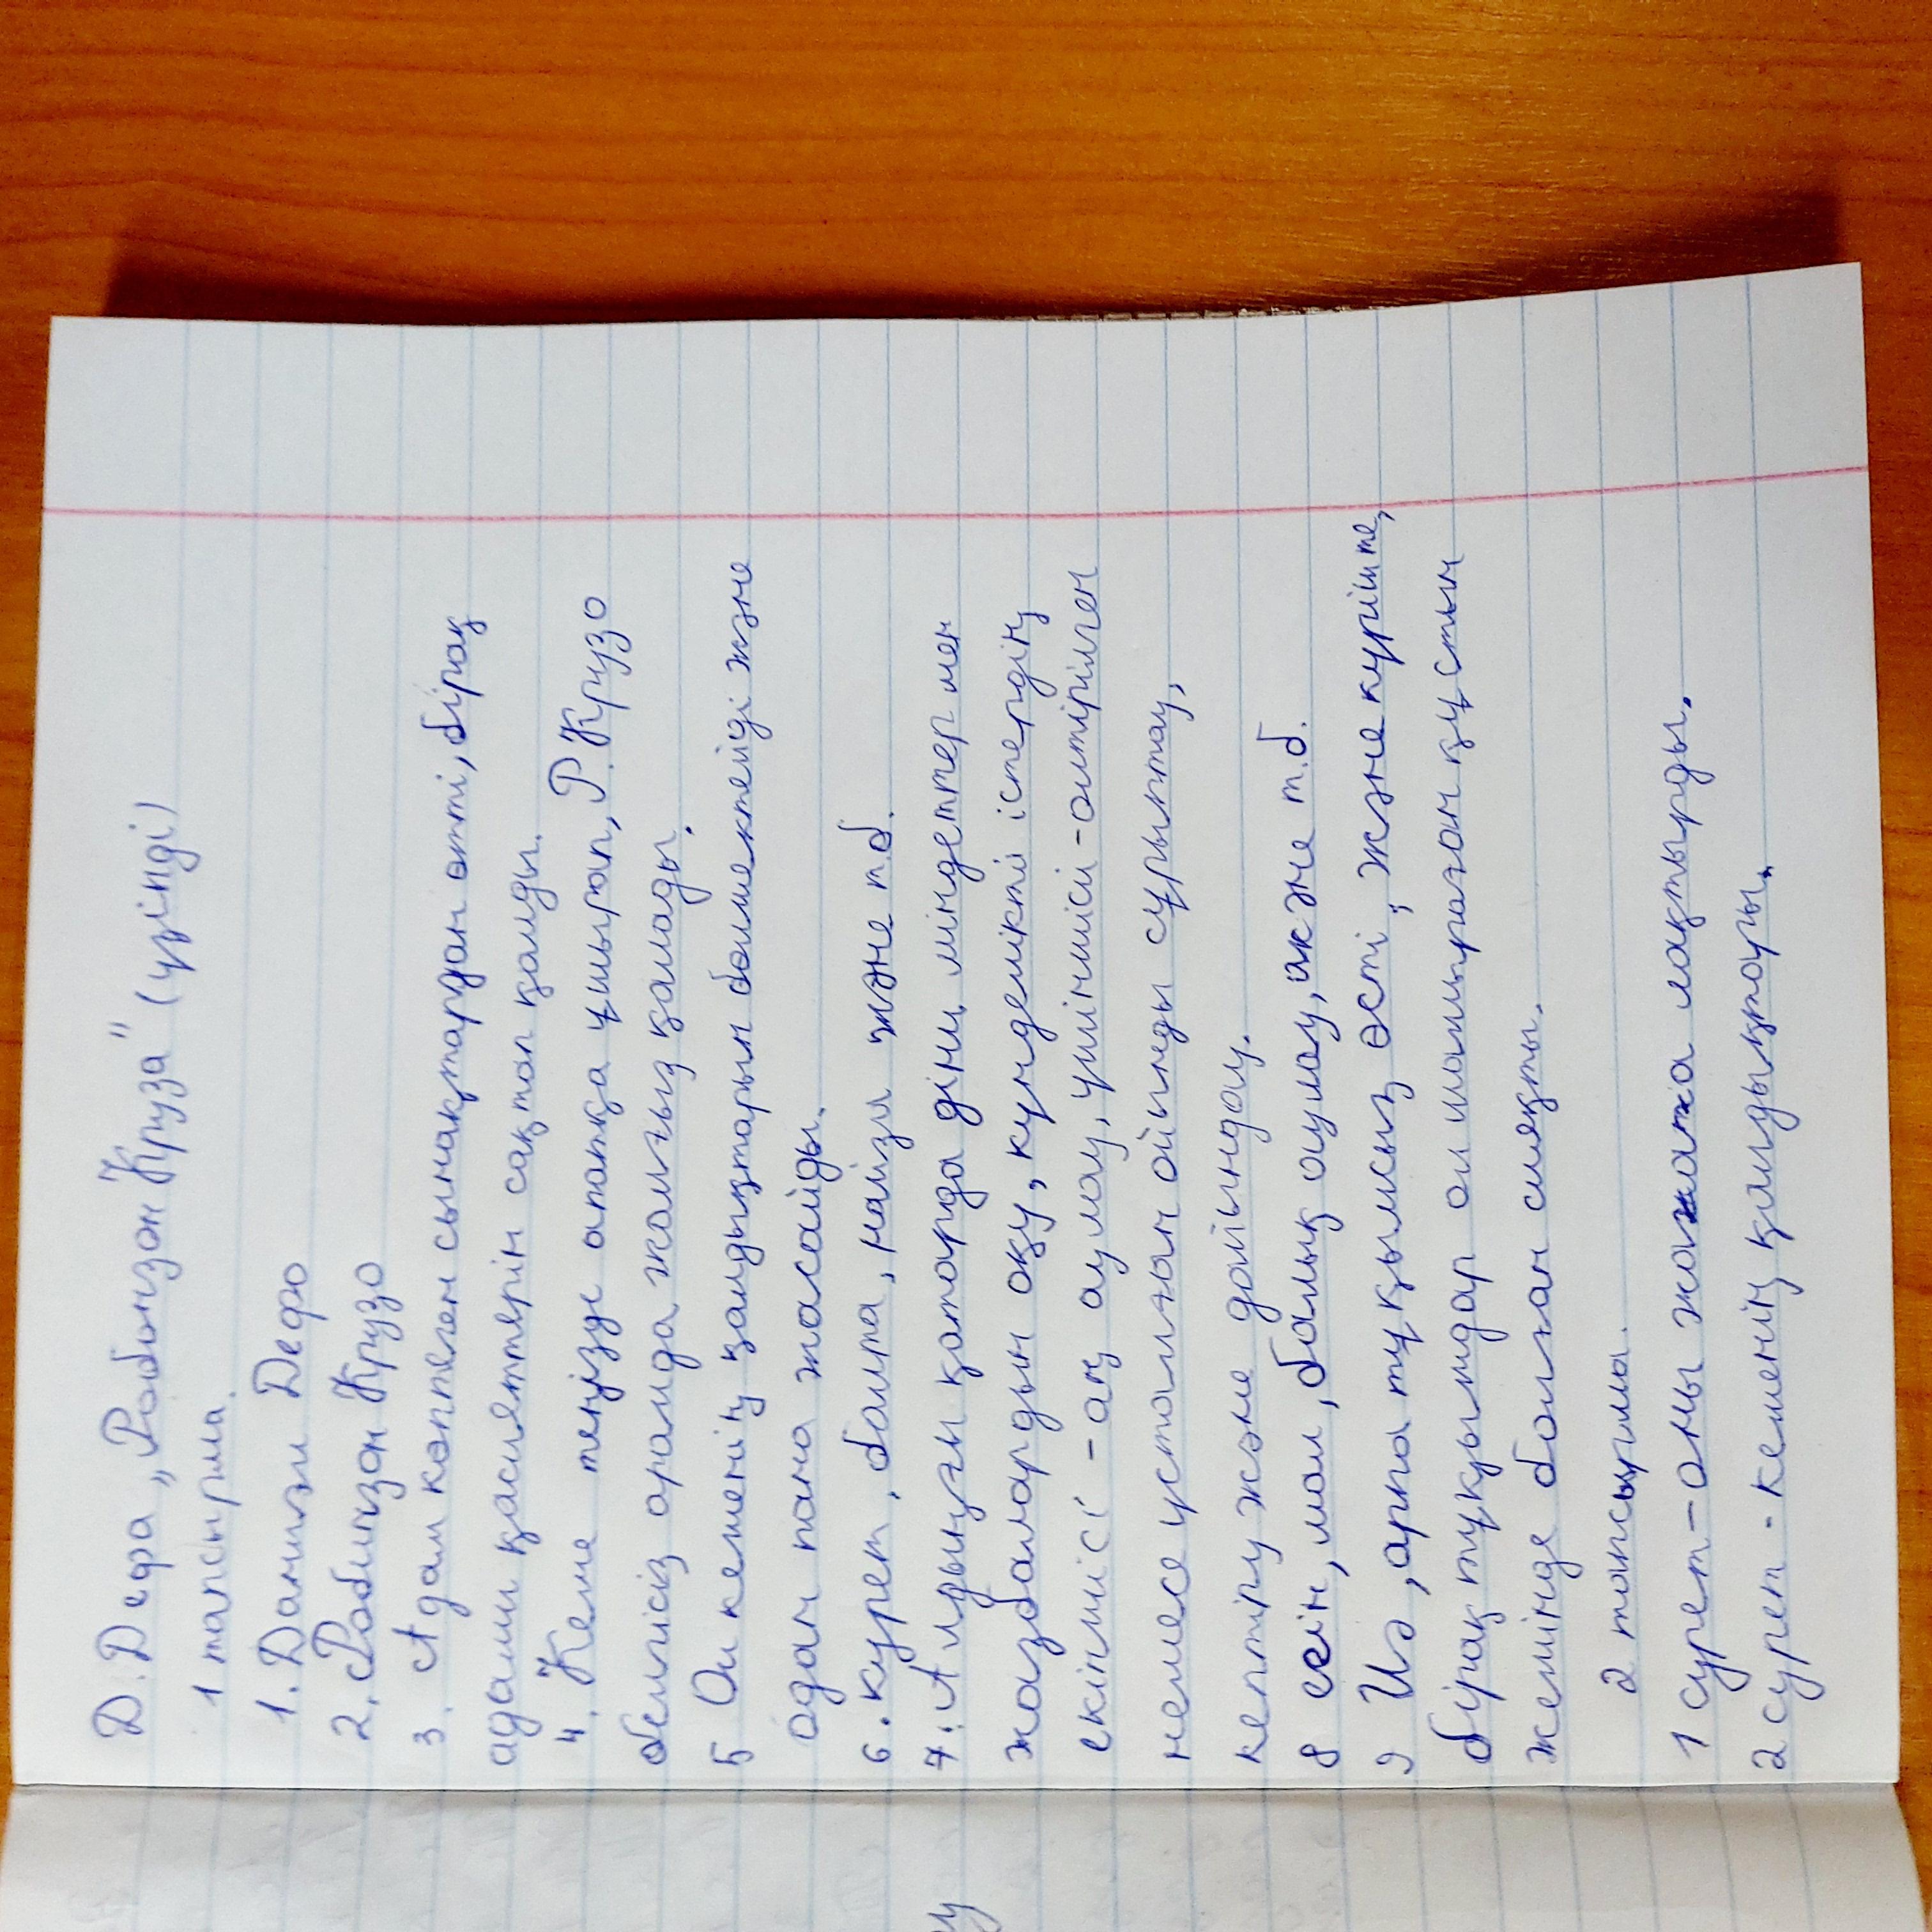 Д. Дефа „Робинзон Круза" (үзінді)
1 тапсырма.
1. Даниэл Дефо
2. Робинзон Крузо
3. Адам көптеген сынақтардан өтті, бірақ
адами қасиеттерін сақтап қалды.
4. Кеме теңізде апатқа ұшырап, Р. Крузо
белгісіз аралда жалғыз қалады.
5 Ол кеменің қалдықтарын бөлшектейді және
одан пана жасайды.
6. күрек, балта, найза және т.б.
7. Алдыңғы қатарда діни міндеттер мен
жазбаларды оқу, күнделікті істердің
екіншісі - аң аулау, үшіншісі - өлтірілген
немесе ұсталған ойынды сұрыптау,
кептіру және дайындау.
8 егін, мал, балық аулау, және т.б.
9 Иә, арпа тұқымсыз өсті, және күрішпе,
бірақ тұқымдар ол шақырған құстың
жемінде болған сияқты.
2 тапсырма.
1 сурет - оны жағаға лақтырды.
2 сурет - кеменің қалдықтары.